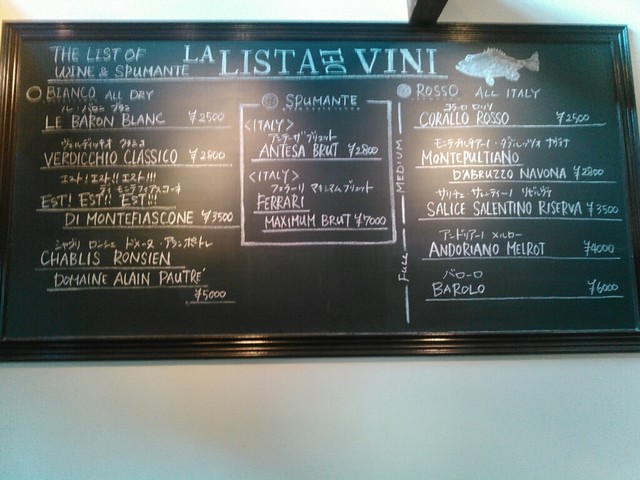 THE LIST OF
WINE & SPUMANTE
LA LISTA DEI VINI
BIANCO ALL DRY
ル・バロン ブラン
LE BARON BLANC ¥2500
ヴェルディッキオ クラシコ
VERDICCHIO CLASSICO ¥2800
エスト!エスト!!エスト!!!
ディ モンテフィアスコーネ
EST! EST!! EST!!!
DI MONTEFIASCONE ¥3500
シャブリ ロンシェン ドメーヌ・アランポートレ
CHABLIS RONSIEN
DOMAINE ALAIN PAUTRÉ
¥5000
SPUMANTE
<ITALY>
アンテーザ ブリュット
ANTESA BRUT ¥2800
<ITALY>
フェラーリ マキシマム ブリュット
FERRARI
MAXIMUM BRUT ¥7000
MEDIUM
FULL
ROSSO ALL ITALY
コラーロ ロッソ
CORALLO ROSSO ¥2500
モンテプルチアーノ・ダブルッツォ
MONTEPULTIANO
D'ABRUZZO NAVONA ¥2800
サリーチェ サレンティーノ リゼルヴァ
SALICE SALENTINO RISERVA ¥3500
アンドリアーノ メルロー
ANDORIANO MELROT ¥4000
バローロ
BAROLO ¥6000